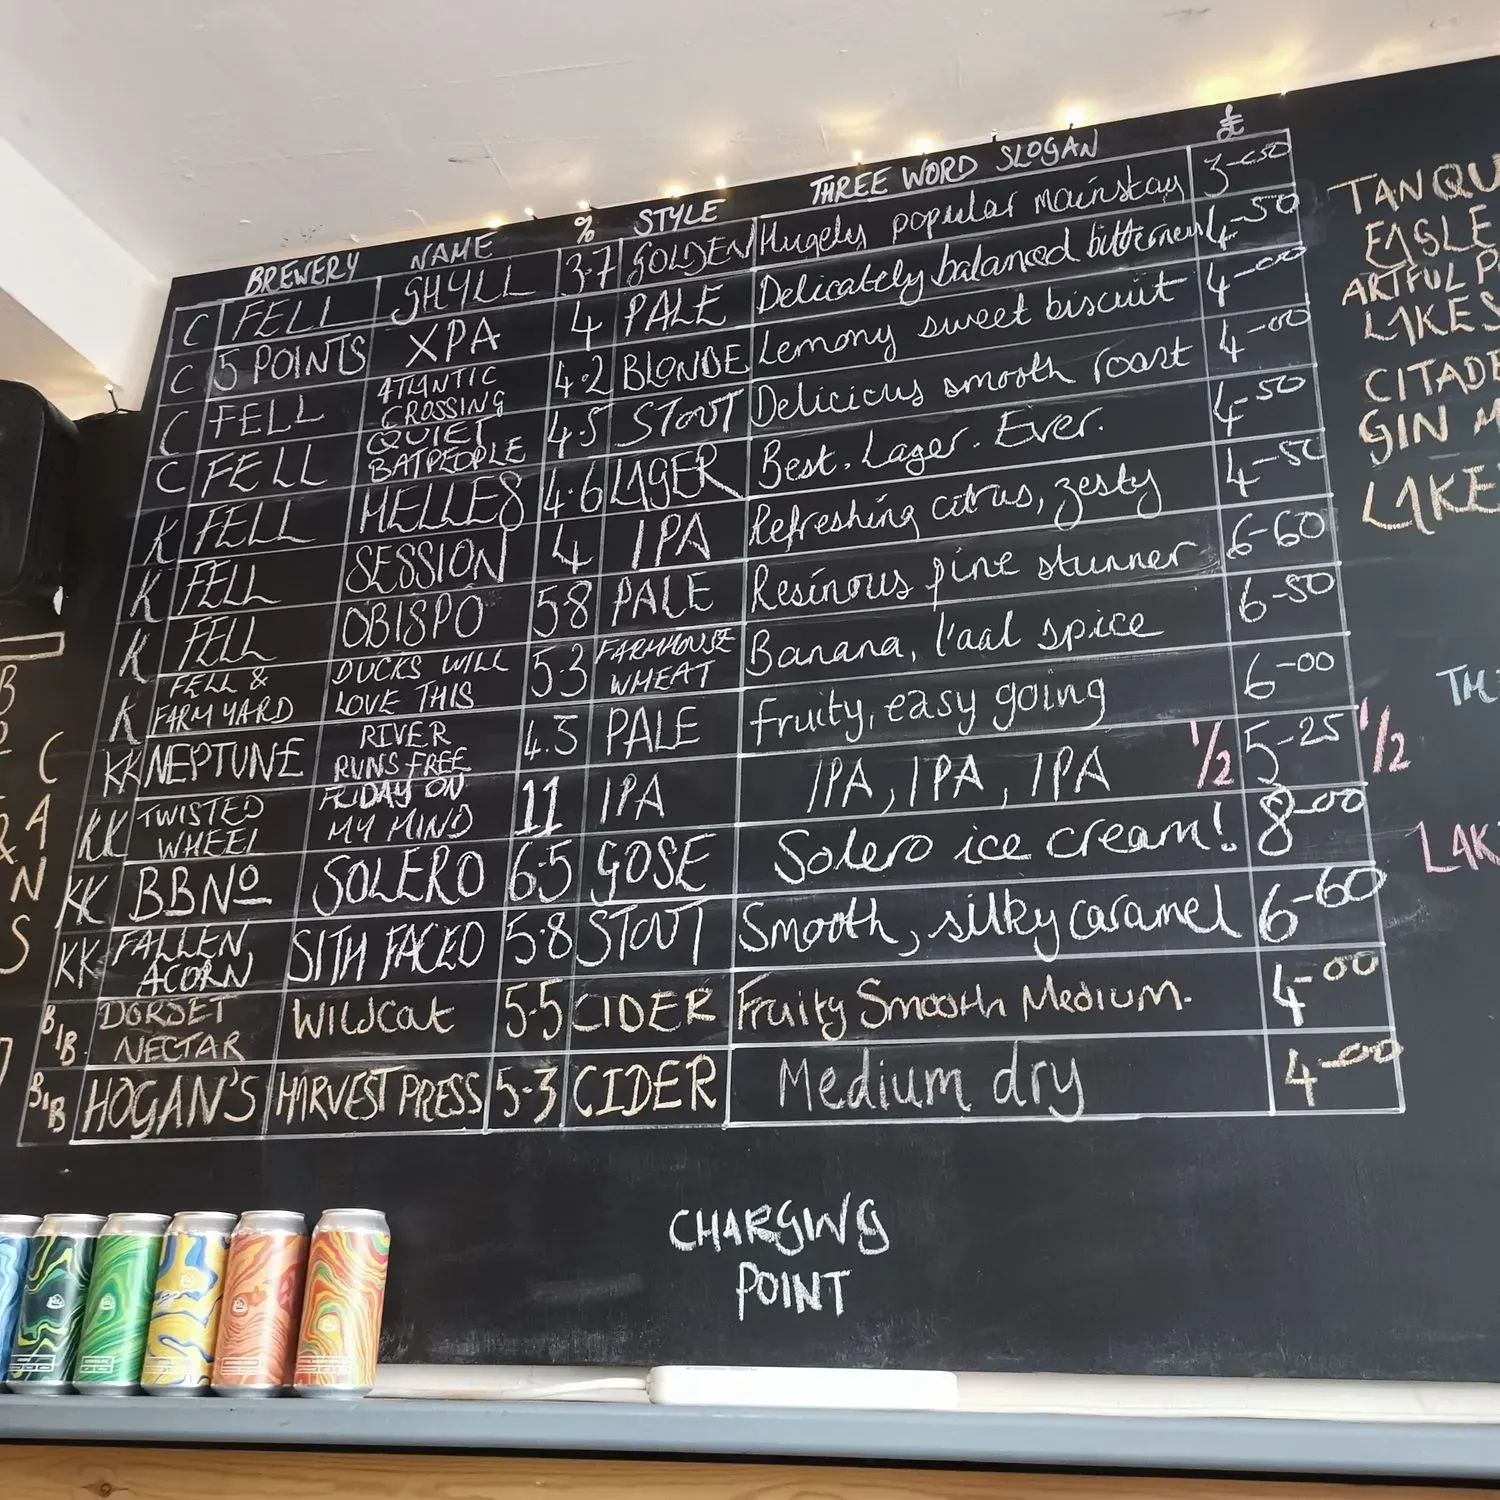 BREWERY NAME % STYLE THREE WORD SLOGAN £
C FELL GHYLL 3.7 GOLDEN Hugely popular mainstay 3-50
C 5 POINTS XPA 4 PALE Delicately balanced bitterness 4-50
C FELL ATLANTIC CROSSING 4.2 BLONDE Lemony sweet biscuit 4-00
C FELL QUIET BATPEOPLE 4.5 STOUT Delicious smooth roast 4-00
K FELL HELLES 4.6 LAGER Best. Lager. Ever. 4-50
K FELL SESSION 4 IPA Refreshing citrus, zesty 4-50
K FELL OBISPO 5.8 PALE Resinous pine stunner 6-60
K FELL & FARM YARD DUCKS WILL LOVE THIS 5.3 FARMHOUSE WHEAT Banana, l'aal spice 6-50
KK NEPTUNE RIVER RUNS FREE 4.3 PALE Fruity, easy going 6-00
KK TWISTED WHEEL FRIDAY ON MY MIND 11 IPA IPA, IPA, IPA 1/2 5-25 1/2
KK BBNo SOLERO 6.5 GOSE Solero ice cream! 8-00
KK FALLEN ACORN SITH FACED 5.8 STOUT Smooth, silky caramel 6-60
B/B. DORSET NECTAR Wildcat 5.5 CIDER Fruity Smooth Medium. 4-00
B/B HOGAN'S HARVEST PRESS 5.3 CIDER Medium dry 4-00
CHARGING
POINT
TANQU
EAGLE
ARTFUL P
LAKES
CITADE
GIN M
LAKE
LAK
C
A
N
S